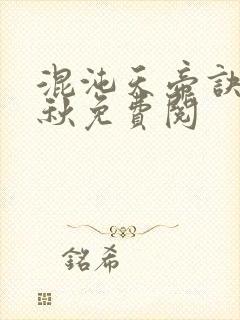 混沌天帝訣
秋免費閱
銘希